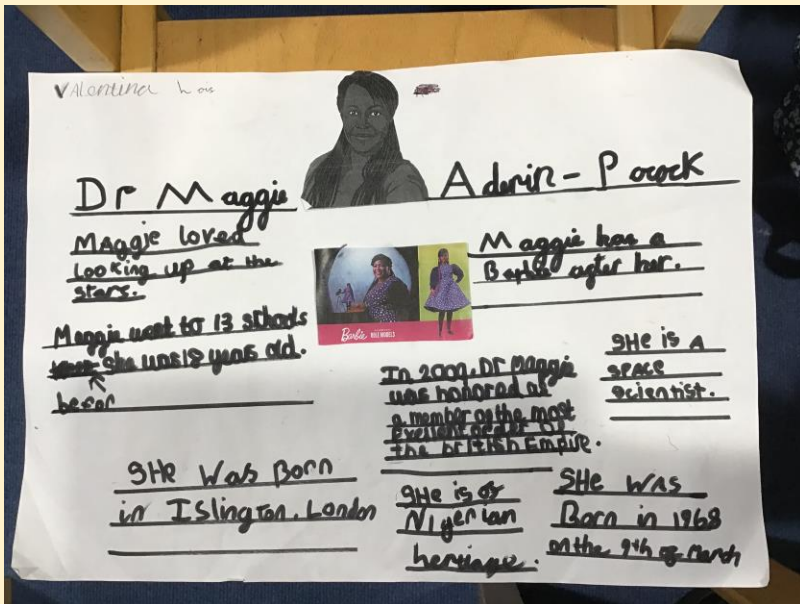 VALentina Lois
Dr Maggie Aderin-Pocock
MAggie loved
looking up at the
stars.
Maggie has a
Barbie after her.
Barbie
ROLE MODELS
Maggie went to 13 schools
she was 18 years old.
befor
In 2009, Dr Maggie
was honored as
a member of the most
exellent order of
the british Empire.
SHe is A
space
scientist.
SHe Was Born
in Islington, London
SHe is of
Nigerian
heritage.
SHe WAS
Born in 1968
on the 9th of March